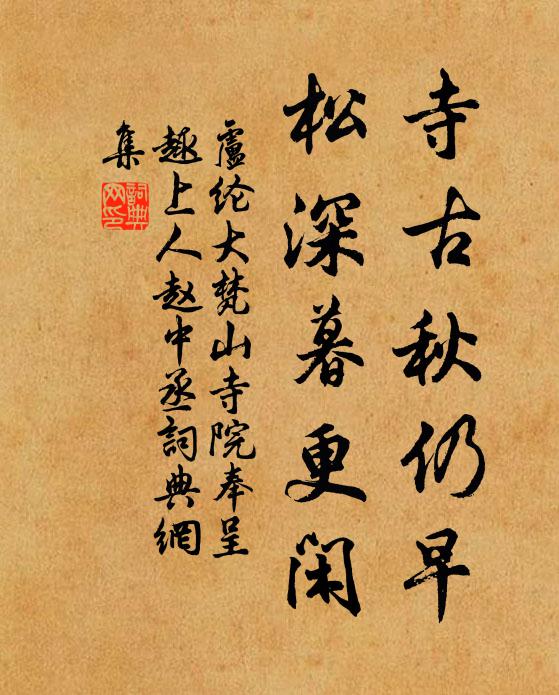 寺古秋仍早
松深暮更閑
盧纶大梵山寺院奉呈
趣上人赵中丞詞典網
集
詞典
网印